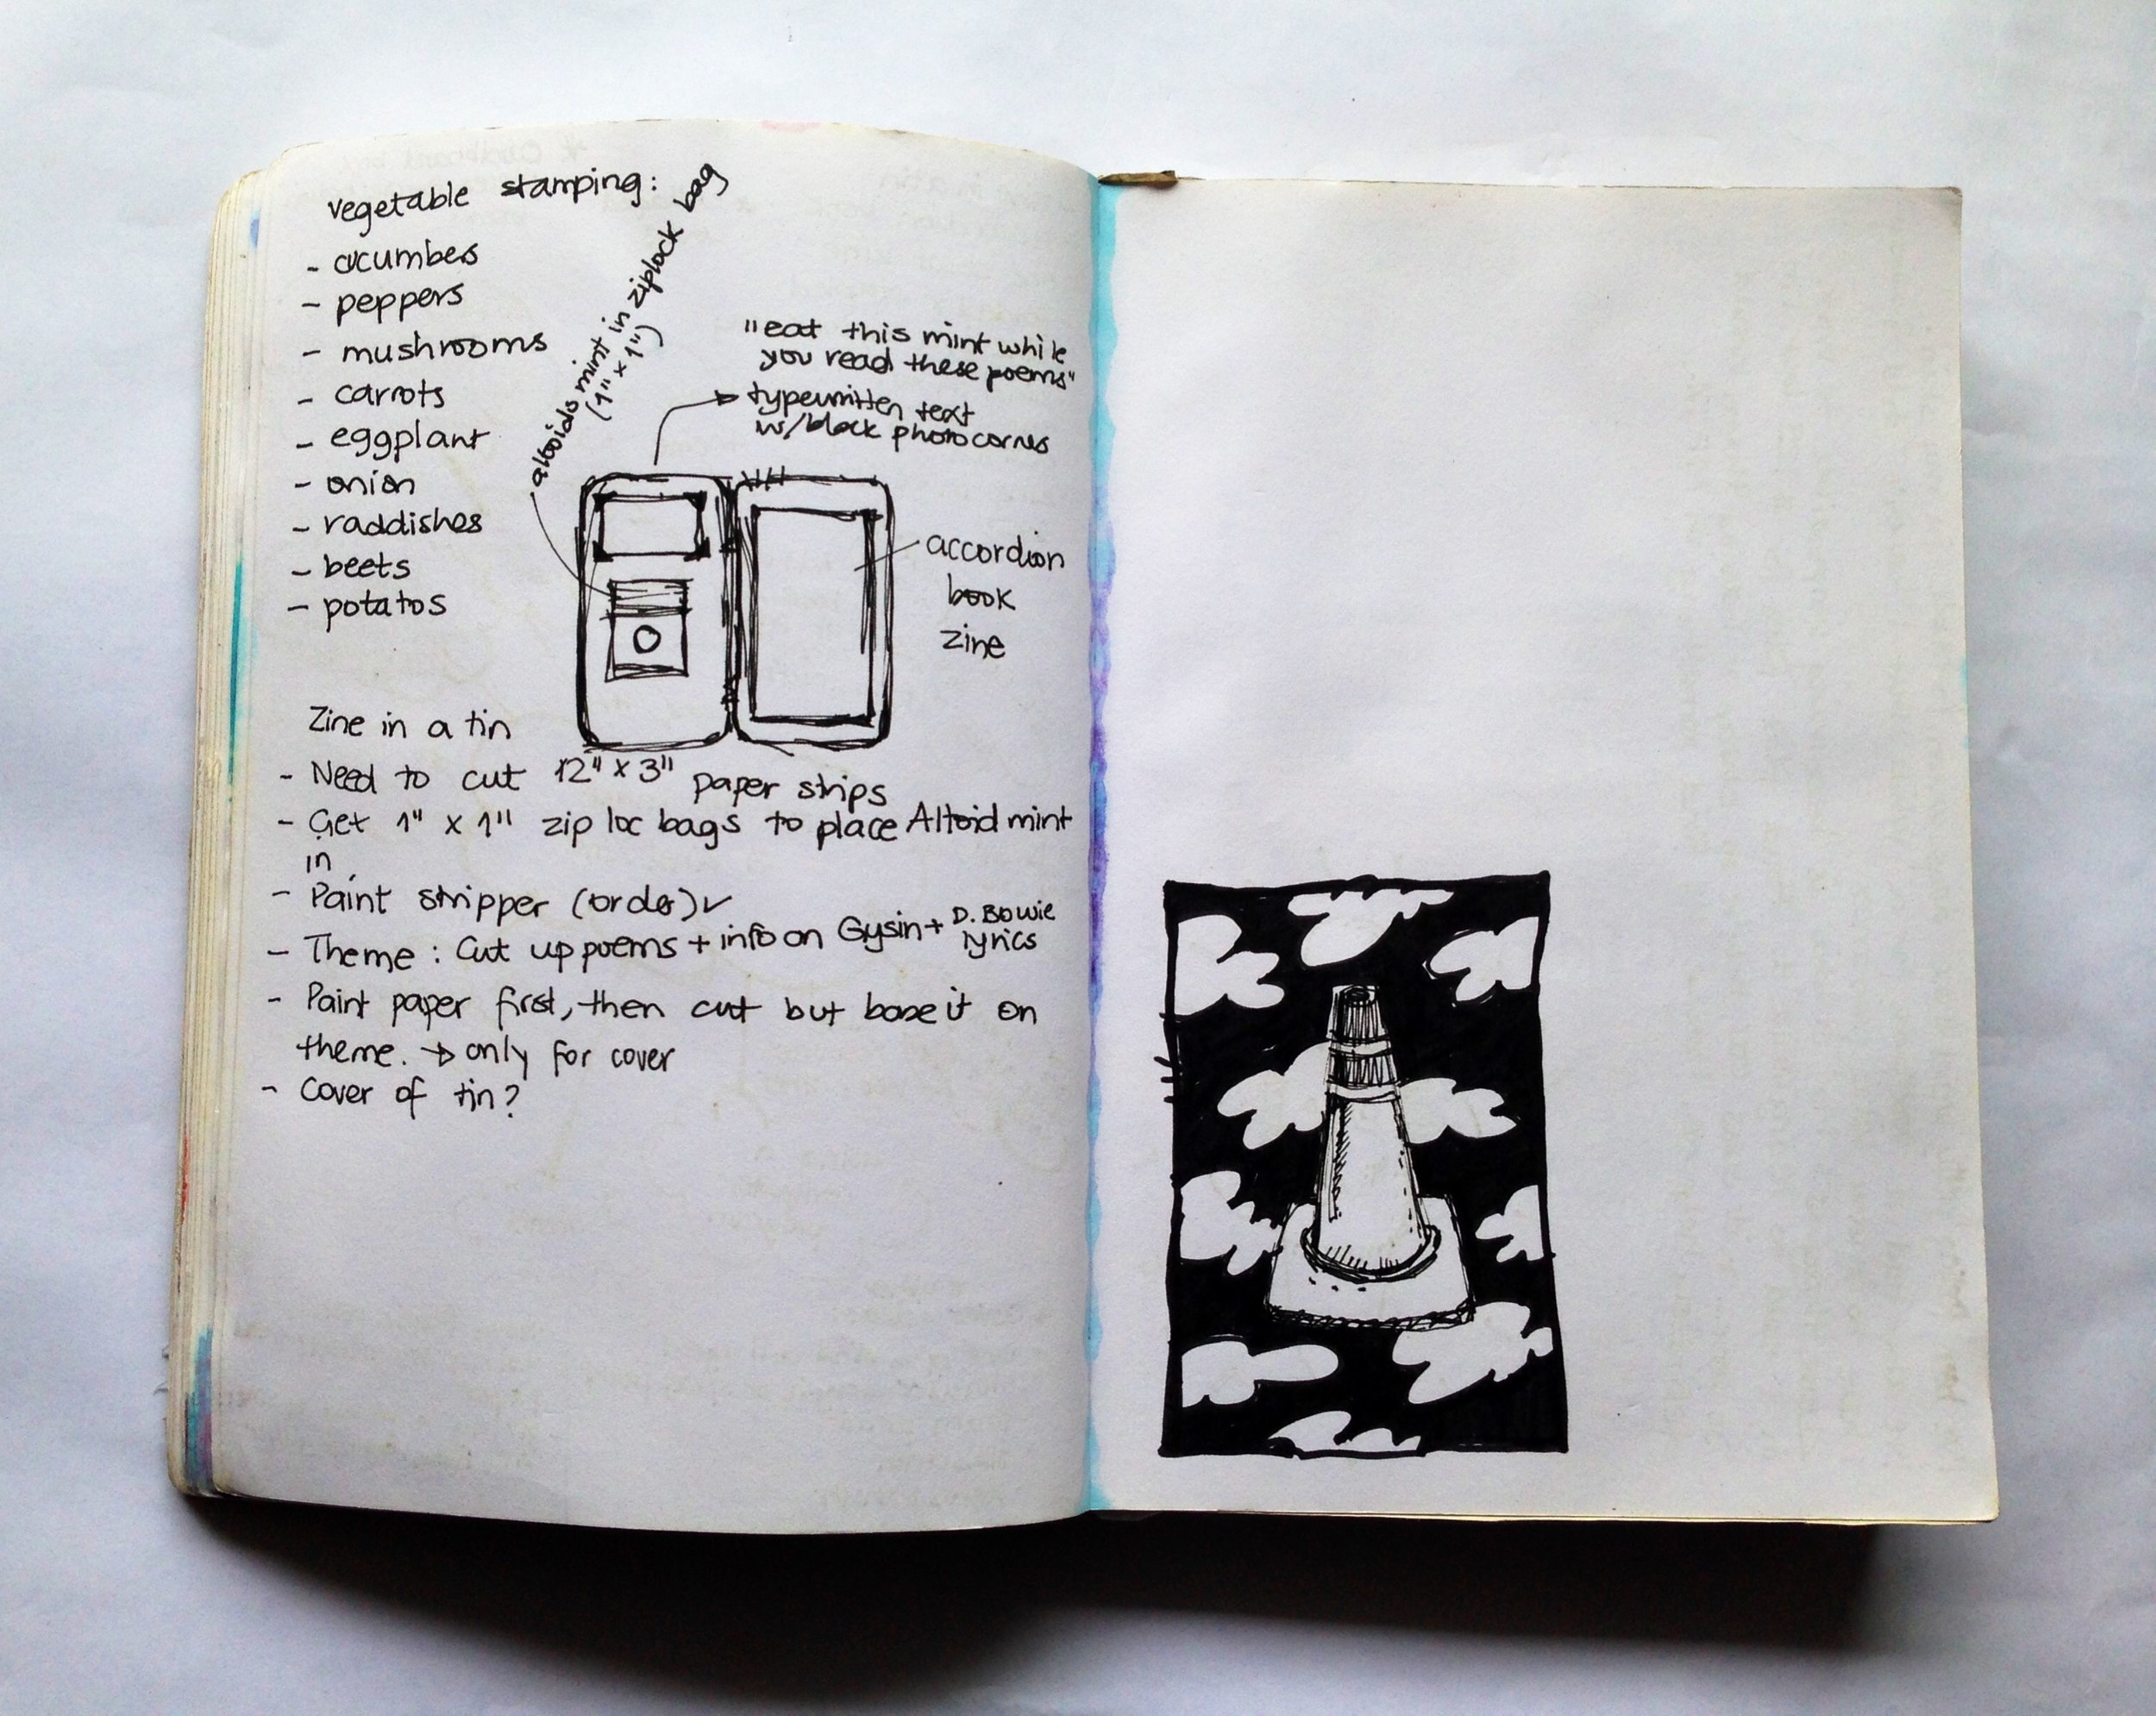 vegetable stamping:
- cucumbers
- peppers
- mushrooms
- carrots
- eggplant
- onion
- raddishes
- beets
- potatos
altoids mint in ziplock bag
(1" x 1")
"eat this mint while
you read these poems"
typewritten text
w/black photocorners
accordion
book
zine
Zine in a tin
- Need to cut 12" x 3" paper strips
- Get 1" x 1" zip loc bags to place Altoid mint
in
- Paint stripper (order) ✓
- Theme: Cut up poems + info on Gysin + D. Bowie
lyrics
- Paint paper first, then cut but base it on
theme. → only for cover
- Cover of tin?